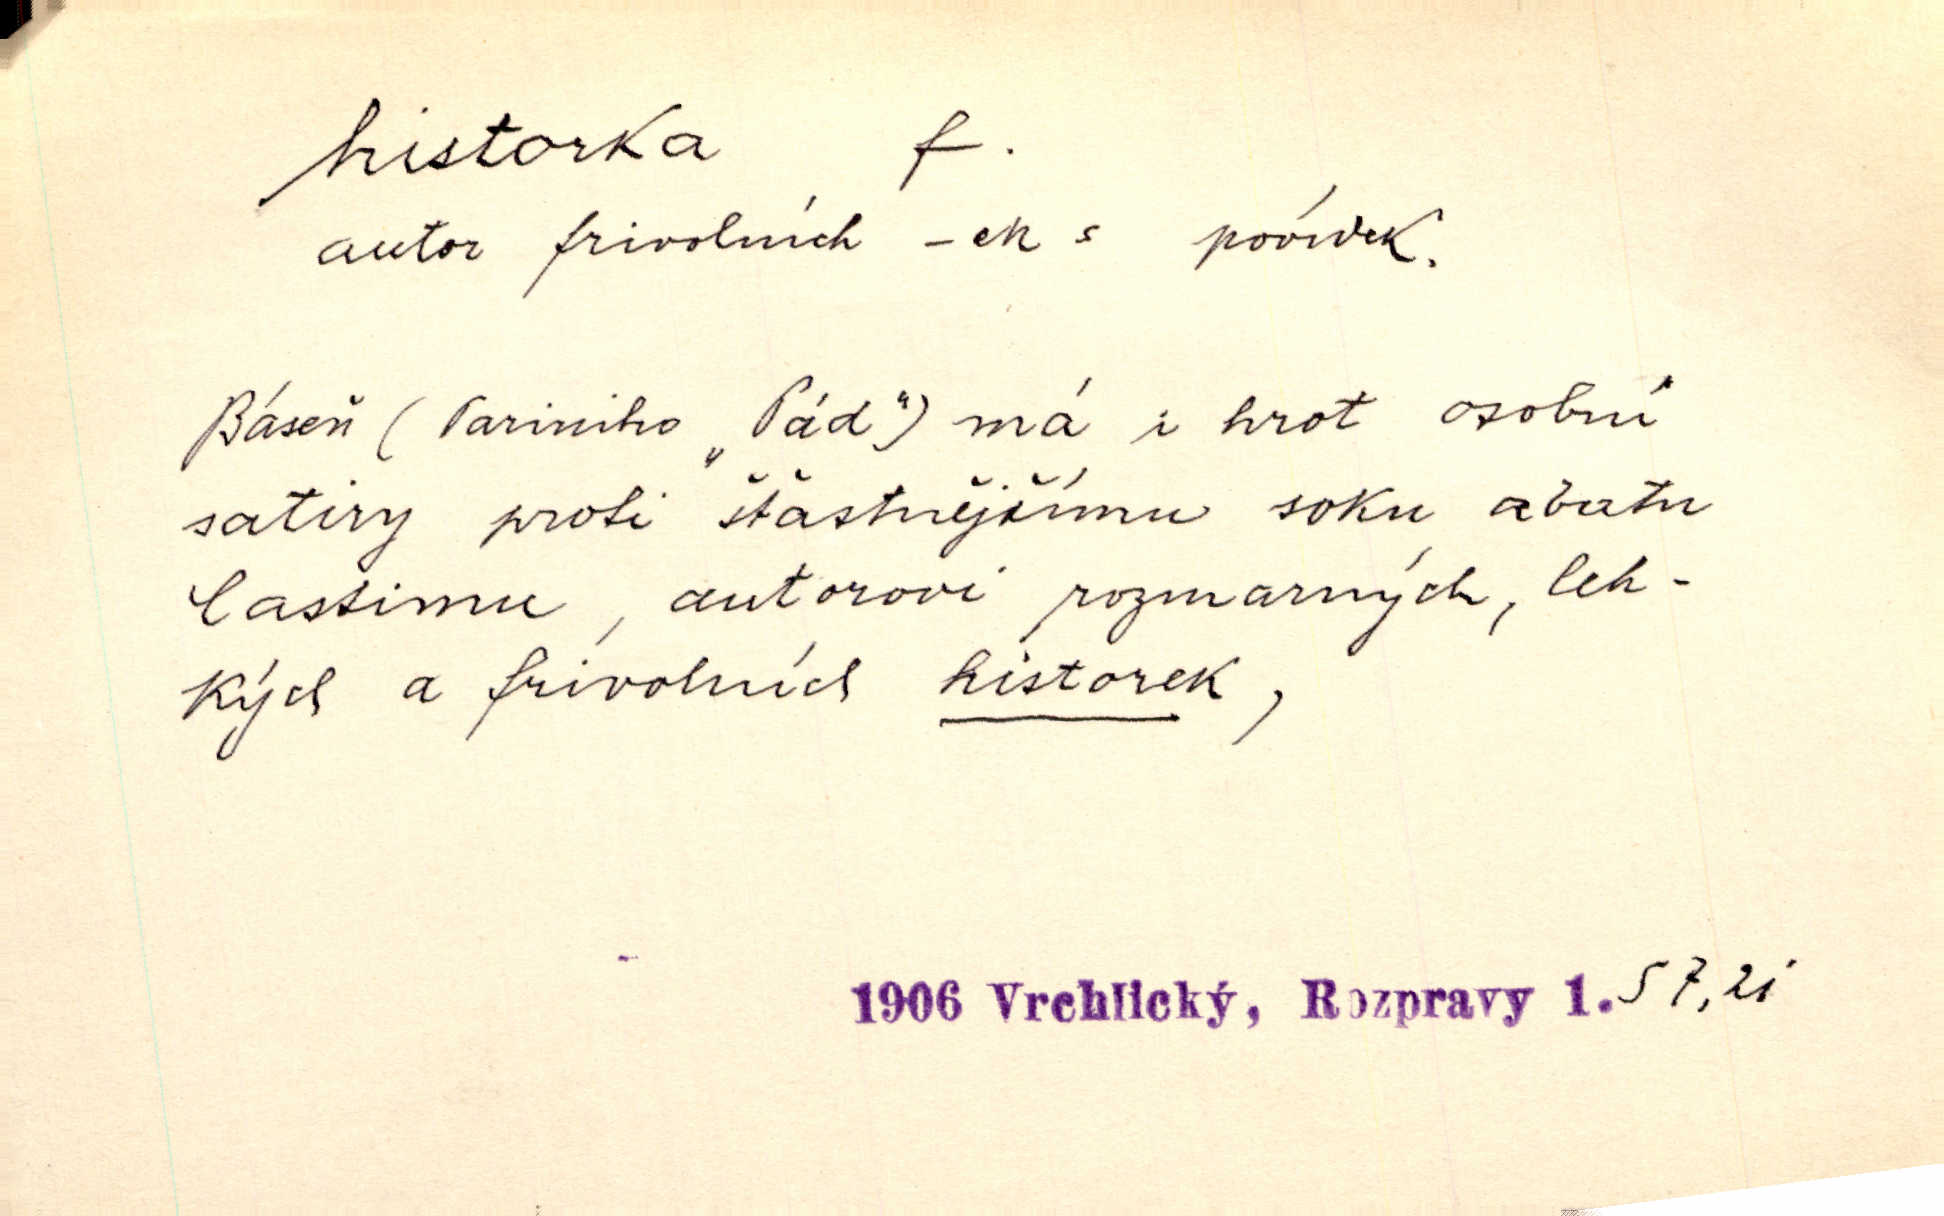 historka f.
autor frivolních -ek s povídek.
Báseň (Pariniho „Pád“) má i hrot osobní
satiry proti šťastnějšímu soku abatu
Castimu, autorovi rozmarných, leh-
kých a frivolních historek,
1906 Vrchlický, Rozpravy 1. 57, 2i